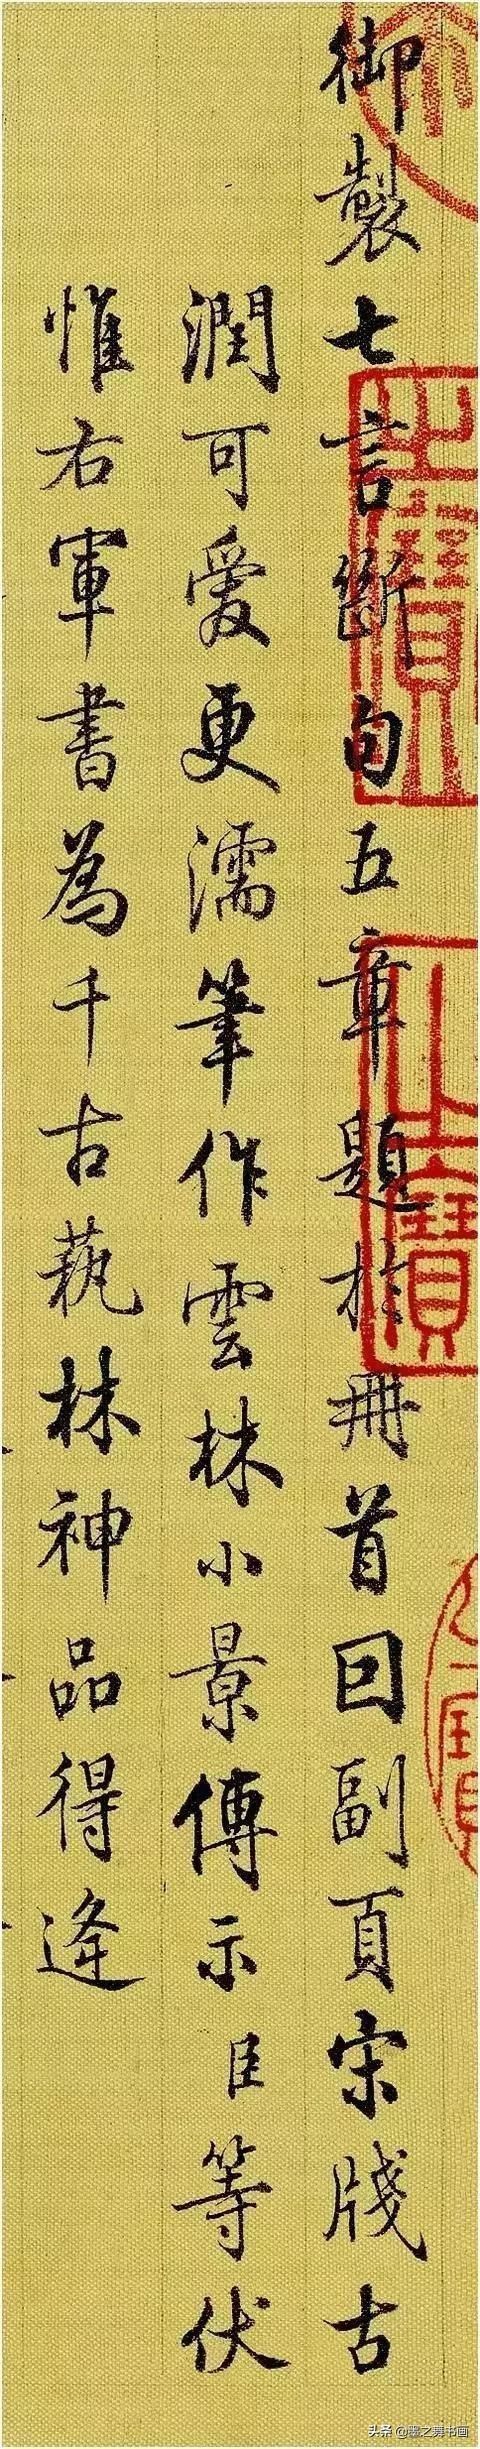 御製七言斷句五章題於冊首因副頁宋牋古
潤可愛更濡筆作雲林小景傳示臣等伏
惟右軍書為千古蓺林神品得逢
头条@墨之舞书画